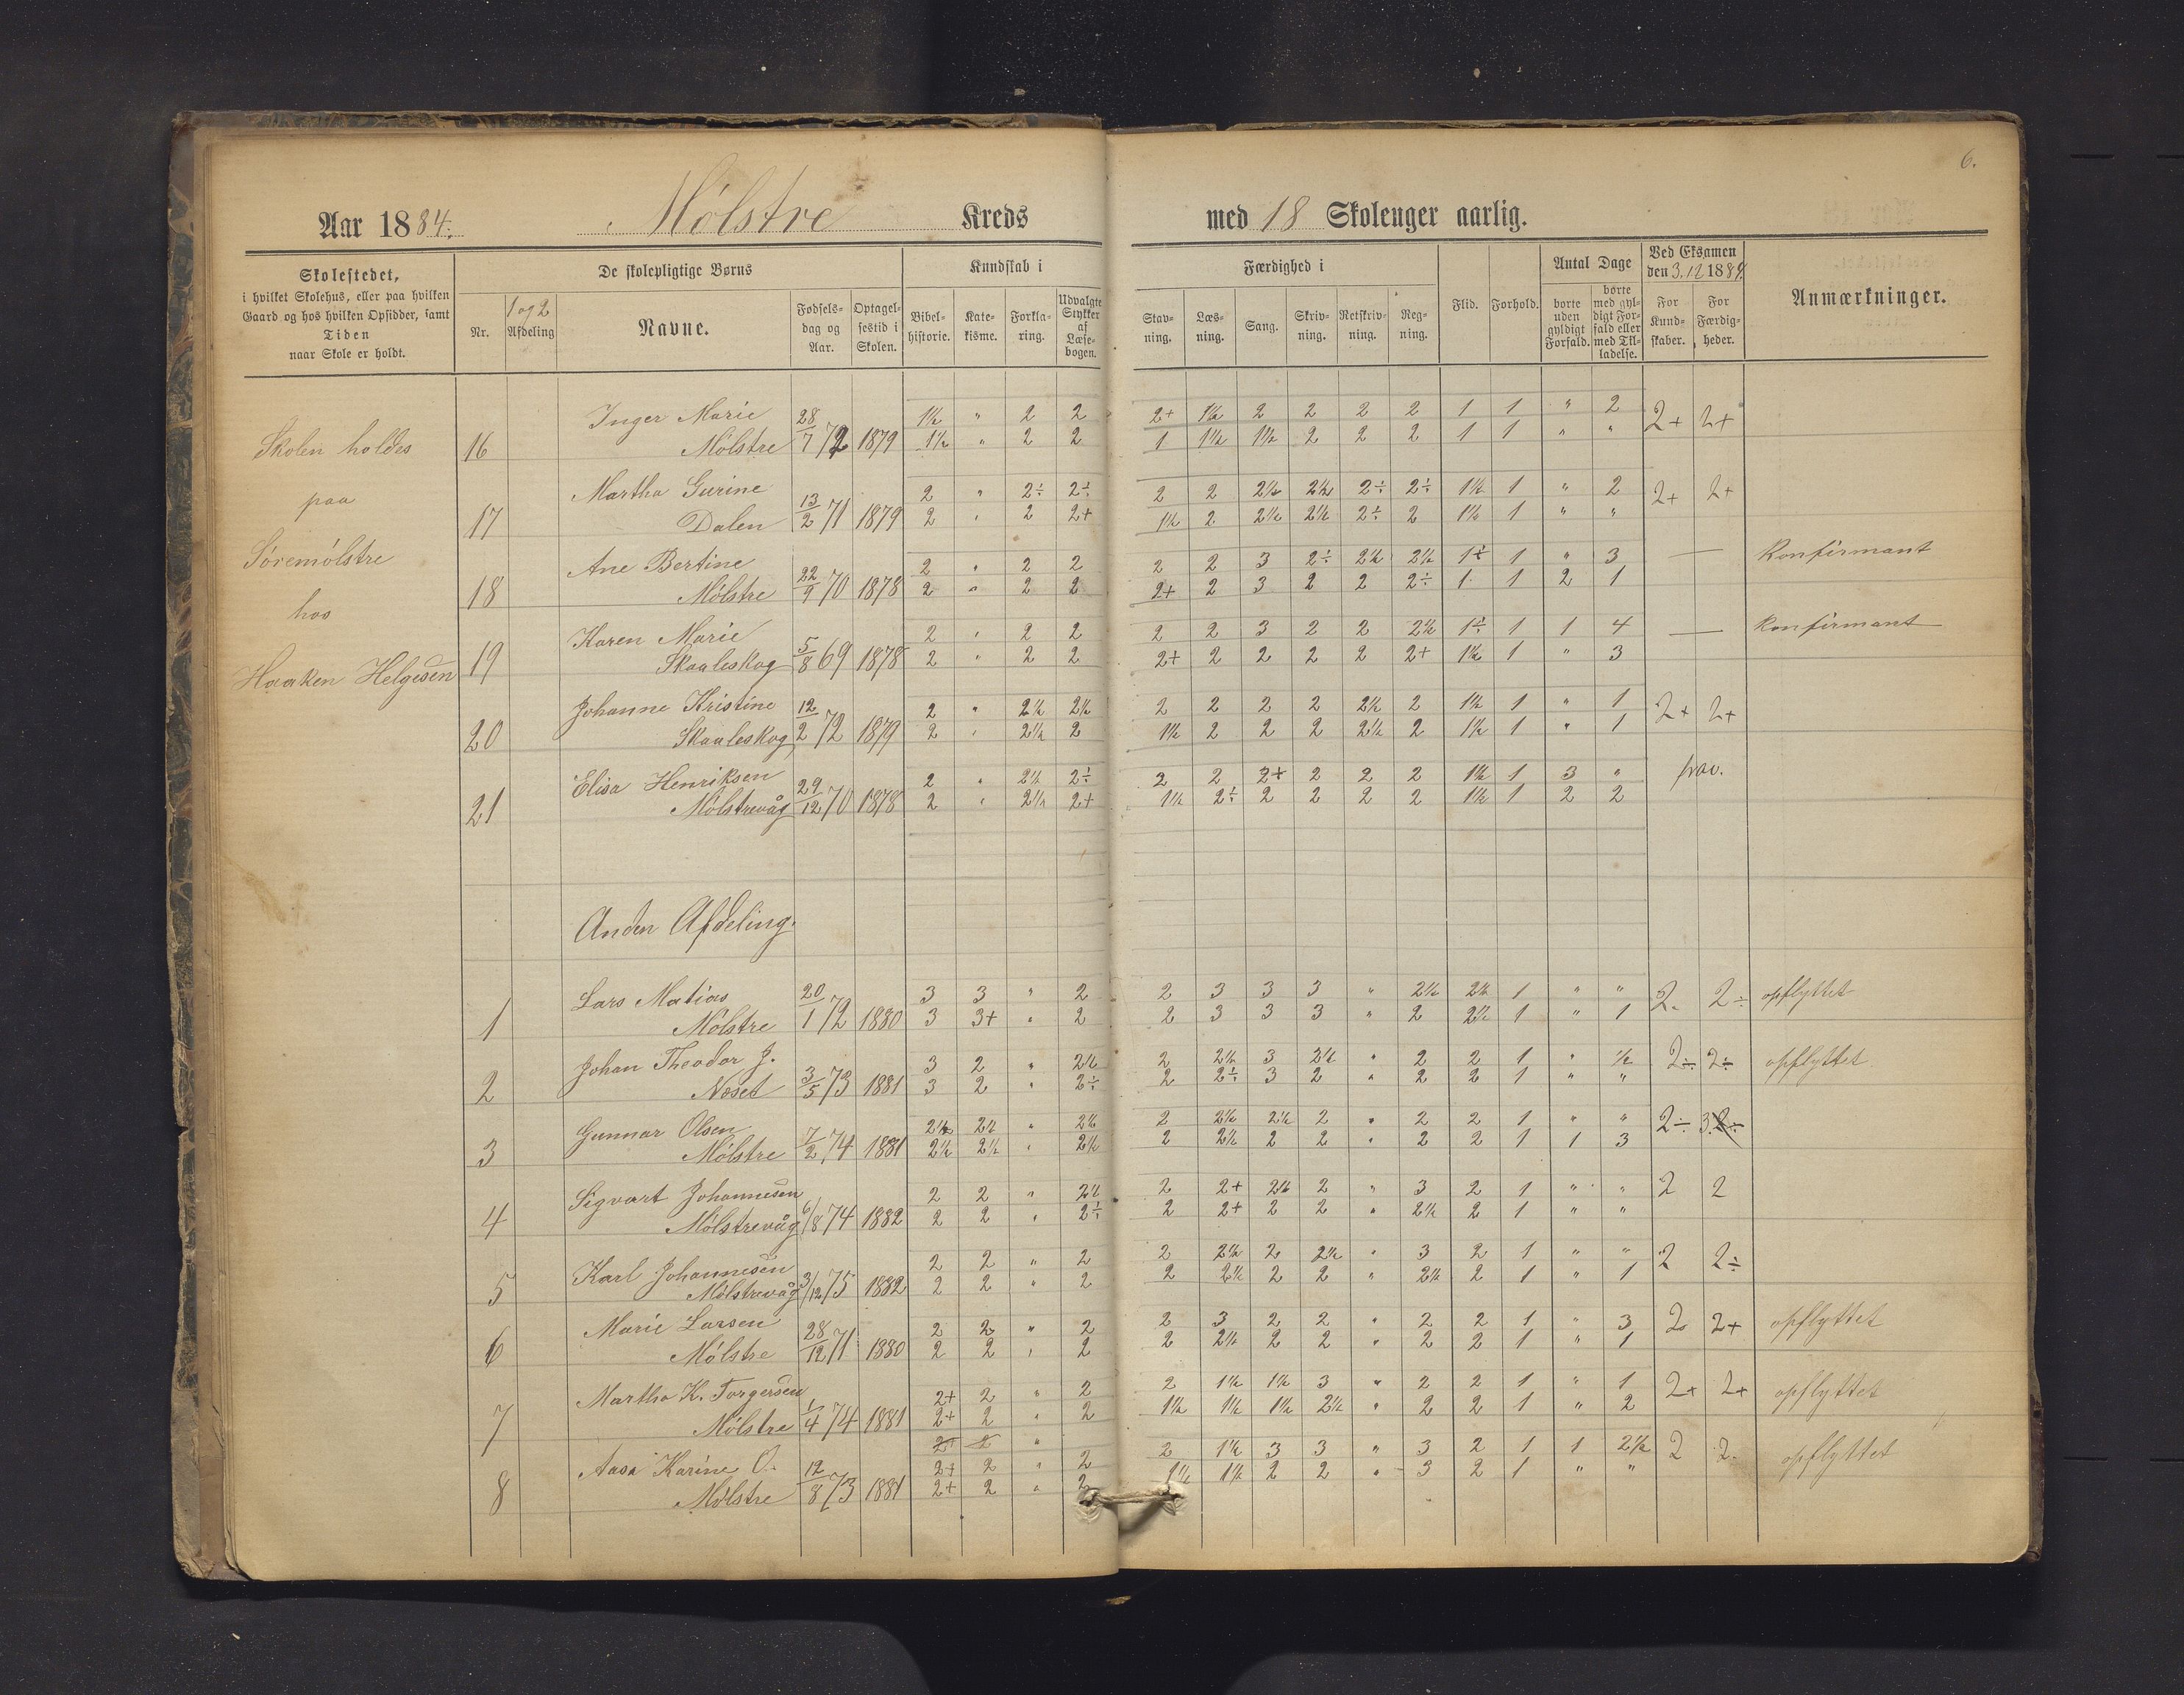 6.
Aar 1884. Mólstre Kreds med 18 Skolenger aarlig.
Skolestedet,
i hvilket Skolehus, eller paa hvilken
Gaard og hos hvilken Opsidder, samt
Tiden
naar Skole er holdt.
De skolepligtige Børns
Nr.
1 og 2
Afdeling
Navne.
Fødsels-
dag og
Aar.
Optagel-
sestid i
Skolen.
Kundskab i
Bibel-
historie.
Kate-
kisme.
Forkla-
ring.
Udvalgte
Stykker
af
Læse-
bogen.
Færdighed i
Stav-
ning.
Læs-
ning.
Sang.
Skriv-
ning.
Retskriv-
ning.
Reg-
ning.
Flid.
Forhold.
Antal Dage
borte
uden
gyldigt
Forfald.
borte
med gyl-
digt For-
fald eller
med Til-
ladelse.
Ved Eksamen
den 3.12 1884.
For
Kund-
skaber.
For
Færdig-
heder.
Anmærkninger.
Skolen holdes
paa
Søremólstre
hos
Haaken Helgesen
Inger Marie 28 1½ " 2 2 2+ 1½ 2 2 2 2 1 1 " 2 2+ 2+
16 Mólstre 7 72 1879 1½ " 2 2 1 1½ 1½ 2 2 2 1 1 " "
Martha Gurine 13 2 " 2÷ 2÷ 2 2 2½ 2½ 2÷ 2÷ 1½ 1 " 2 2+ 2+
17 Dalen 2 71 1879 2 " 2 2+ 1½ 2 2½ 2½ 2÷ 2 1½ 1 " "
Ane Bertine 22 2 " 2 2 2 2 3 2÷ 2½ 2½ 1÷ 1 " 3 — Konfirmant
18 Mólstre 9 70 1878 2 " 2 2 2+ 2 3 2 2 2÷ 1 1 2 1
Karen Marie 5 2 " 2 2 2 2 3 2 2 2½ 1÷ 1 1 4 — Konfirmant
19 Skaaleskog 8 69 1878 2 " 2 2 2+ 2 2 2 2 2+ 1½ 1 " 3
Johanne Kristine 12 2 " 2½ 2½ 2 2 2 2 2½ 2 1½ 1 " 1 2+ 2+
20 Skaaleskog 2 72 1879 2 " 2½ 2 1½ 2 2 2 2½ 2 1½ 1 " 1
Elisa Henriksen 29 2 " 2½ 2÷ 2 2 2+ 2 2 2 1½ 1 3 " frav.
21 Mólstrevåg 12 70 1878 2 " 2½ 2+ 1½ 2÷ 2 2 2 2 1½ 1 2 2
Anden Afdeling.
Lars Matias 20 3 3 " 2 2 3 3 3 " 2½ 2½ 1 " " 2. 2÷ opflyttet
1 Mólstre 1 72 1880 3 3+ " 2 2 3 3 3 " 2 2½ 1 " 1
Johan Theodor J. 3 3 2 " 2½ 2 2½ 3 2½ " 2 2 1 " ½ 2÷ 2÷ opflyttet
2 Næset 5 73 1881 3 2 " 2÷ 2 2÷ 3 2 " 2 2 1 " "
Gunnar Olsen 7 2½ 2½ " 2½ 2 2½ 2½ 2 " 2 2 1 " " 2÷ 3
3 Mólstre 2 74 1881 2½ 2½ " 2½ 2 2½ 2 2 " 2 2 1 1 3
Sigvart Johannesen 6 2 2 " 2½ 2 2+ 2½ 2 " 3 2 1 " " 2 2
4 Mólstrevåg 8 74 1882 2 2 " 2÷ 2 2+ 2 2 " 2½ 2 1 " "
Karl Johannesen 3 2 2 " 2 2 2½ 2 2½ " 3 2 1 " " 2 2÷
5 Mólstrevåg 12 75 1882 2 2 " 2 2 2½ 2 2 " 2½ 2 1 " 1
Marie Larsen 28 2 2 " 2 2 3 2 2 " 2 2 1 " 3 2 2+ opflyttet
6 Mólstre 12 71 1880 2 2 " 2 2 2½ 2 2 " 2 2 1 " 1
Martha K. Torgersen 1 2+ 2 " 2 2 1½ 1½ 3 " 2 2 1 " 1 2+ 2+ opflyttet
7 Mólstre 4 74 1881 2+ 2 " 2 1½ 1½ 1½ 2½ " 2 2 1 " 2
2+ 2 "
Aasa Karine O. 12 2+ 2 " 2 2 1½ 3 3 " 3 2 1 1 2½ 2 2. opflyttet
8 Mólstre 8 73 1881 2+ 2 " 2 1½ 1½ 2 2 " 3 2 1 " "